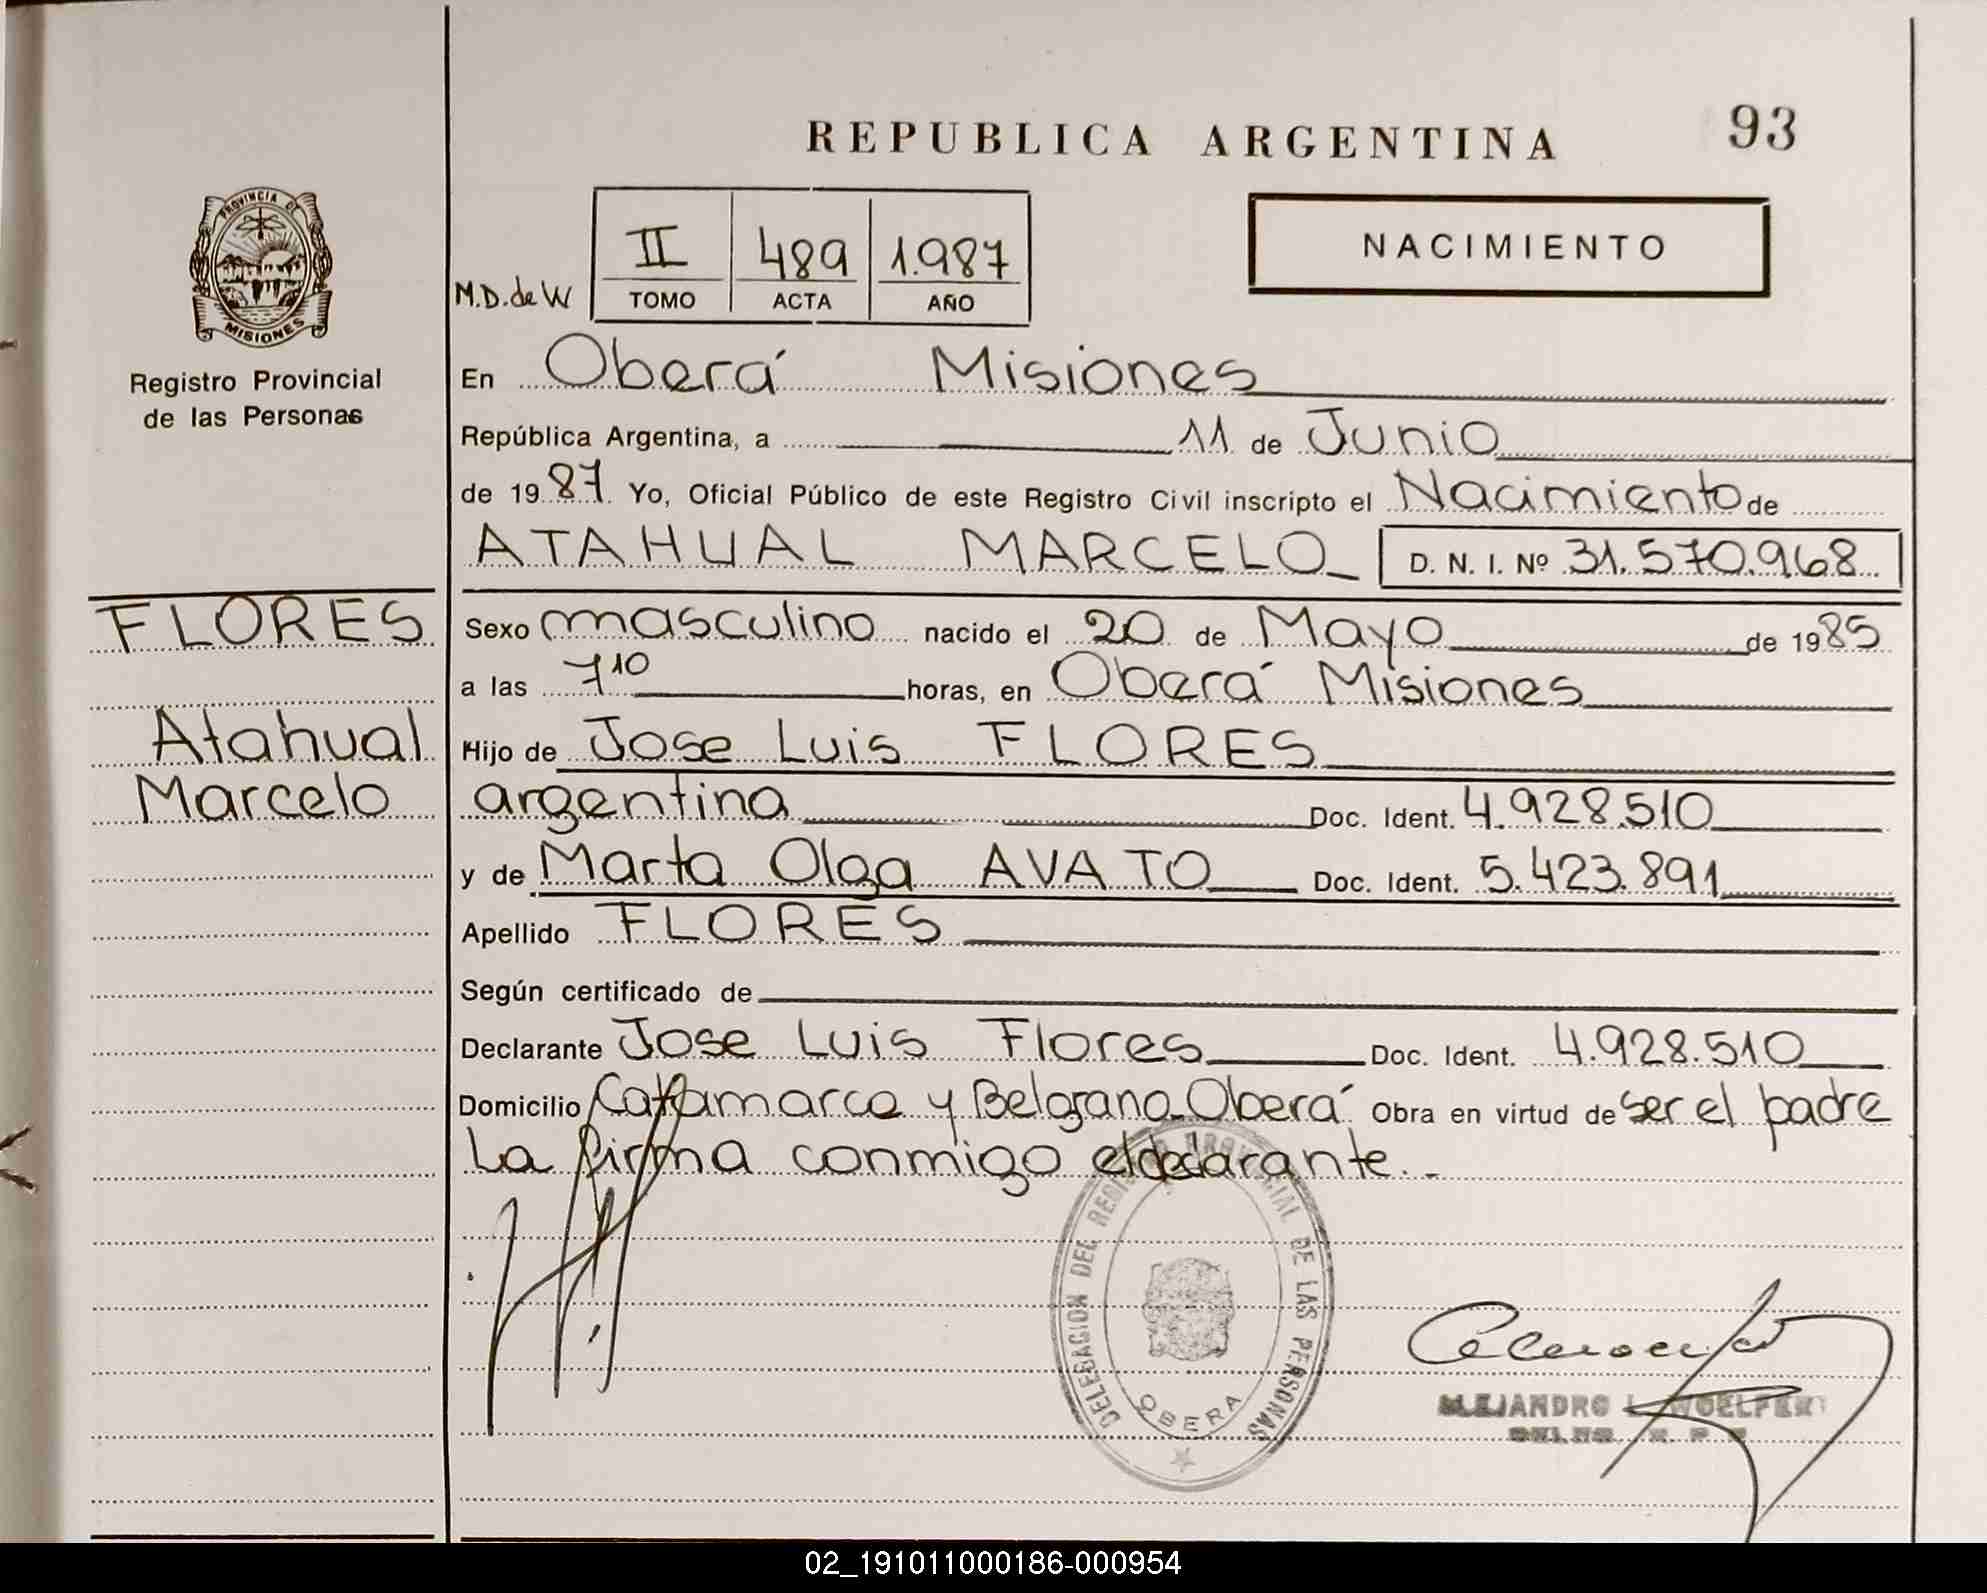 REPUBLICA ARGENTINA
93
PROVINCIA DE
MISIONES
Registro Provincial
de las Personas
II 489 1.987
TOMO ACTA AÑO
M.D. de W
NACIMIENTO
En Oberá Misiones
República Argentina, a 11 de Junio
de 1987 Yo, Oficial Público de este Registro Civil inscripto el Nacimiento de
ATAHUAL MARCELO D. N. I. Nº 31.570.968
FLORES
Atahual
Marcelo
Sexo masculino nacido el 20 de Mayo de 1985
a las 7 10 horas, en Oberá Misiones
Hijo de Jose Luis FLORES
argentina Doc. Ident. 4.928.510
y de Marta Olga AVATO Doc. Ident. 5.423.891
Apellido FLORES
Según certificado de
Declarante Jose Luis Flores Doc. Ident. 4.928.510
Domicilio Catamarca y Belgrano_Oberá Obra en virtud de ser el padre
La firma conmigo el declarante._
DELEGACION DEL REGISTRO PROVINCIAL DE LAS PERSONAS
OBERA
ALEJANDRO L. WOELFERT
02_191011000186-000954